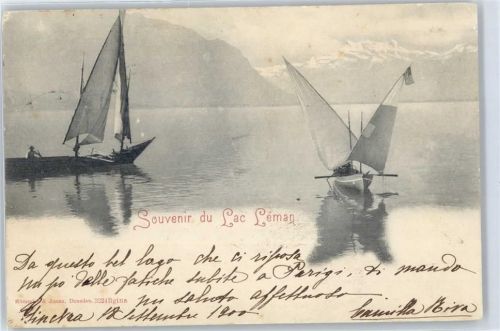 Souvenir du Lac Léman.
Da questo bel lago che ci riposa
un po' delle fatiche subite a Parigi, ti mando
un saluto affettuoso
Ginevra 12 Settembre 1900 Camilla Riva